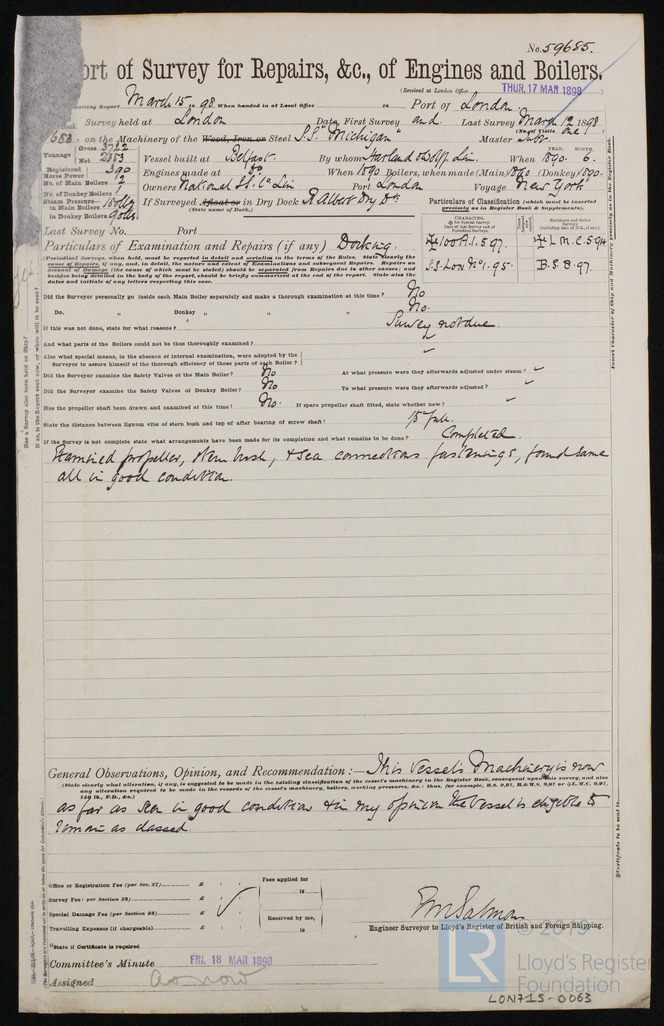 No. 59685.
ort of Survey for Repairs, &c., of Engines and Boilers.
(Received at London Office THUR, 17 MAR 1898
riting Report March 15 1898 When handed in at Local Office 18 Port of London
Survey held at London Date, First Survey and Last Survey March 12 1898
(No. of Visits one)
653 on the Machinery of the Wood, Iron or Steel S.S. "Michigan" Master
Tonnage Gross 3722 Net 2353 Vessel built at Belfast By whom Harland & Wolff Lim. When 1890. 6.
YEAR. MONTH.
Registered Horse Power 390 Engines made at Do When 1890 Boilers, when made (Main) 1890 (Donkey) 1890.
No. of Main Boilers 2 Owners National S.S. Co Lim Port London Voyage New York
No. of Donkey Boilers 1
Steam Pressure in Main Boilers in Donkey Boilers If Surveyed Afloat or in Dry Dock R Albert Dry Dk
(State name of Dock.)
Particulars of Classification (which must be inserted precisely as in Register Book & Supplements).
Last Survey No. Port
100 A.1. 5.97. L.M.C. 5.94
S.S. Lon No 1. 95. B.S. 8.97.
Particulars of Examination and Repairs (if any) Docking.
(Periodical Surveys, when held, must be reported in detail and seriatim in the terms of the Rules. State clearly the
cause of Repairs, if any, and, in detail, the nature and extent of Examinations and subsequent Repairs. Repairs on
account of Damage (the cause of which must be stated) should be separated from Repairs due to other causes; and
besides being detailed in the body of the report, should be briefly summarised at the end of the report. State also the
dates and initials of any letters respecting this case.
Did the Surveyor personally go inside each Main Boiler separately and make a thorough examination at this time? No
Do. " Donkey " " " No.
If this was not done, state for what reasons? Survey not due.
And what parts of the Boilers could not be thus thoroughly examined? "
Also what special means, in the absence of internal examination, were adopted by the
Surveyor to assure himself of the thorough efficiency of those parts of each Boiler? "
Did the Surveyor examine the Safety Valves of the Main Boiler? No At what pressure were they afterwards adjusted under steam? "
Did the Surveyor examine the Safety Valves of Donkey Boiler? No To what pressure were they afterwards adjusted? "
Has the propeller shaft been drawn and examined at this time? No. If spare propeller shaft fitted, state whether new? "
State the distance between lignum vitæ of stern bush and top of after bearing of screw shaft? full.
If the Survey is not complete state what arrangements have been made for its completion and what remains to be done? Completed.
Examined propeller, stern bush, & sea connections fastenings, found same
all in good condition.
General Observations, Opinion, and Recommendation:— This Vessel's Machinery is now
(State clearly what alteration, if any, is suggested to be made in the existing classification of the vessel's machinery in the Register Book, consequent upon this survey, and also
any alteration required to be made in the records of the vessel's machinery, boilers, working pressure, &c.: thus, for example, B.S. 9,97, B.& M.S. 9,97 or L.M.C. 9,97,
140 lb., F.D., &c.)
as far as seen in good condition & in my opinion the Vessel is eligible to
remain as classed.
Office or Registration Fee (per Sec. 27) £
Survey Fee (per Section 28) £
Special Damage Fee (per Section 28) £
Travelling Expenses (if chargeable) £
Fees applied for 18
Received by me, 18
*State if Certificate is required
Salmon
Engineer Surveyor to Lloyd's Register of British and Foreign Shipping.
Committee's Minute FRI, 18 MAR 1898
Assigned as now
LR © 2019
Lloyd's Register
Foundation
LON715-0063